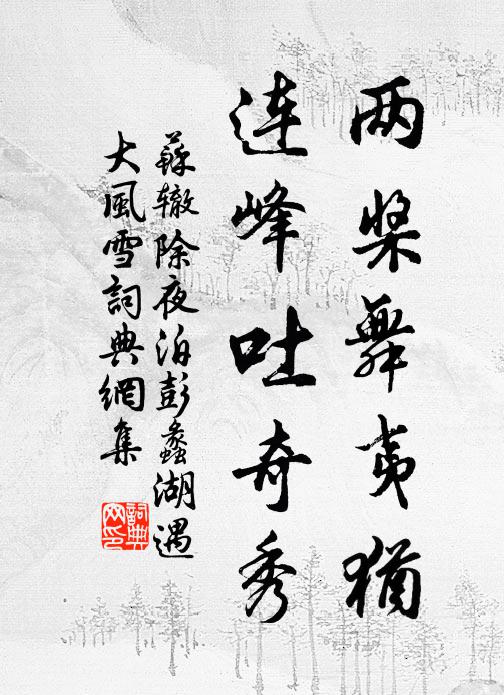 两桨舞夷犹
连峰吐奇秀
蘇辙除夜泊彭蠡湖遇
大風雪詞典網集
詞典
网印